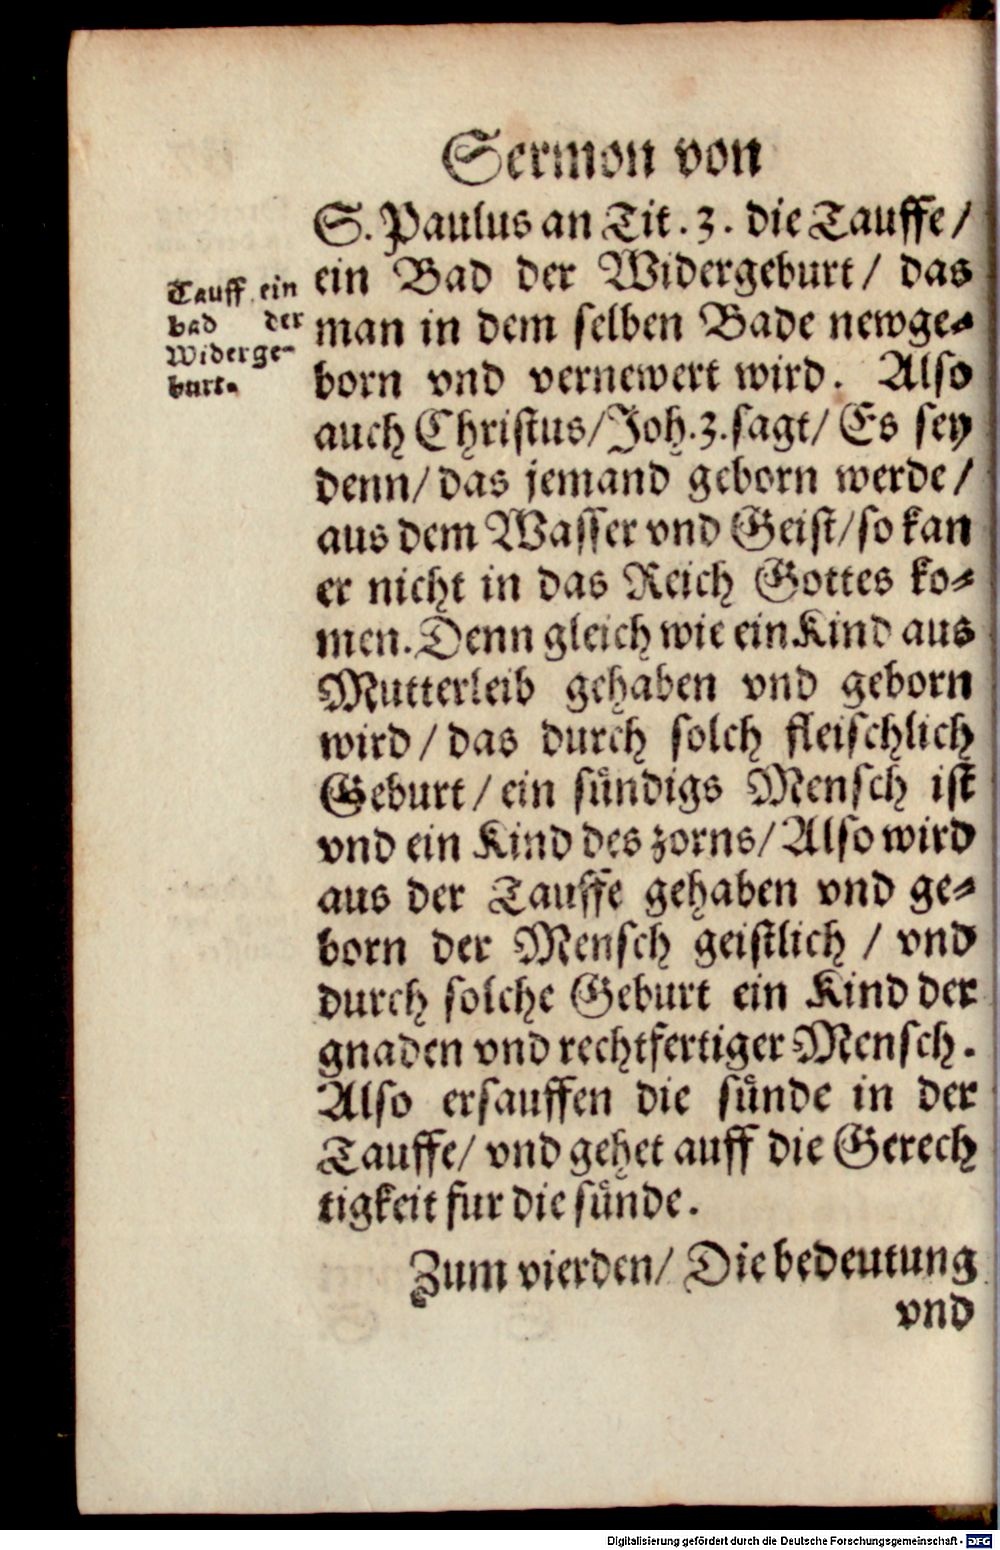 Sermon von
S. Paulus an Tit. 3. die Tauffe /
ein Bad der Widergeburt / das
man in dem selben Bade newge⸗
born vnd vernewert wird. Also
auch Christus / Joh. 3. sagt / Es sey
denn / das jemand geborn werde /
aus dem Wasser vnd Geist / so kan
er nicht in das Reich Gottes ko⸗
men. Denn gleich wie ein Kind aus
Mutterleib gehaben vnd geborn
wird / das durch solch fleischlich
Geburt / ein sündigs Mensch ist
vnd ein Kind des zorns / Also wird
aus der Tauffe gehaben vnd ge⸗
born der Mensch geistlich / vnd
durch solche Geburt ein Kind der
gnaden vnd rechtfertiger Mensch.
Also ersauffen die sünde in der
Tauffe / vnd gehet auff die Gerech
tigkeit fur die sünde.
Zum vierden / Die bedeutung
vnd
Tauff ein
bad der
Widerge⸗
burt.
Digitalisierung gefördert durch die Deutsche Forschungsgemeinschaft - DFG